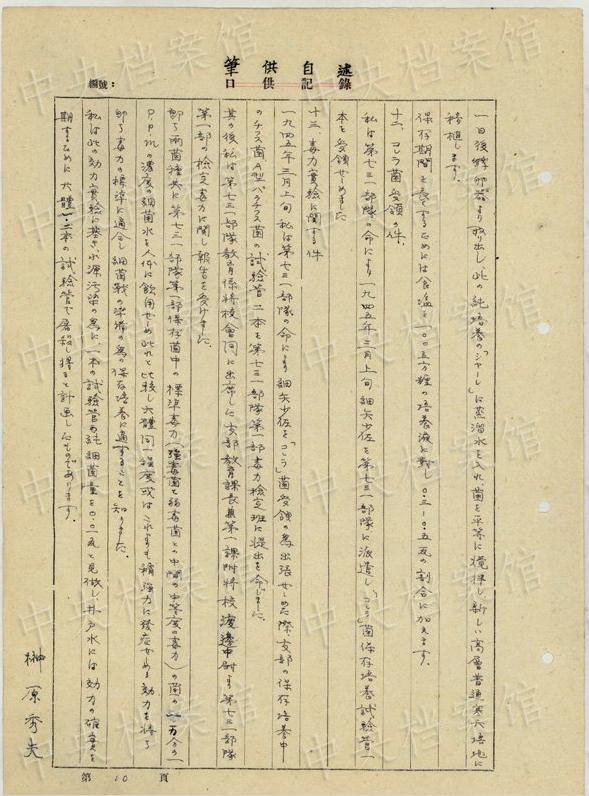 筆供自述
口供記錄
編號：
一日後孵卵器より取り出し此の純培養の「シャーレ」に蒸溜水を入れ、菌を平等に攪拌し新しい高層普通寒天培地に
移植します。
保存期間を長くするためには食塩を一〇〇立方糎の培養液に對し〇.三―〇.五瓦の割合に加えます。
十二、コレラ菌受領の件、
私は第七三一部隊の命により一九四五年三月上旬、細矢少佐を第七三一部隊に派遣し「コレラ」菌保存培養試験管一
本を受領せしめました
十三、毒力實験に関する件
一九四五年三月上旬私は第七三一部隊の命により細矢少佐を「コレラ」菌受領の為出張せしめた際、支部の保存培養中
のチフス菌A型パラチフス菌の試験管二本を第七三一部隊第一部毒力検定班に提出を命じました。
其の後私は第七三一部隊教育係将校會同に出席し、支部教育課長兼第一課附将校渡邊中尉より第七三一部隊
第一部の検定毒力に関し報告を受けました。
即ち両菌種共に第七三一部隊第一部保存菌中の標準毒力（強毒菌と弱毒菌との中間の中等度の毒力）の菌の一万分の一
P.P.Mの濃度の細菌水を人体に飲用せしめ此れと比較し大體同一程度或はこれよりも稍強力に發症せしめる効力を持ち
即ち毒力の標準に適合し細菌戦の準備の為の保存培養に適することを知りました。
私は此の効力實験に基き水源汚染の為に、一本の試験管の純細菌量を0.01瓦と見做し、井戸水には効力の確實を
期するために大體一・二本の試験管で屠殺し得ると計画したものであります。
榊原秀夫
第10頁
中央档案馆